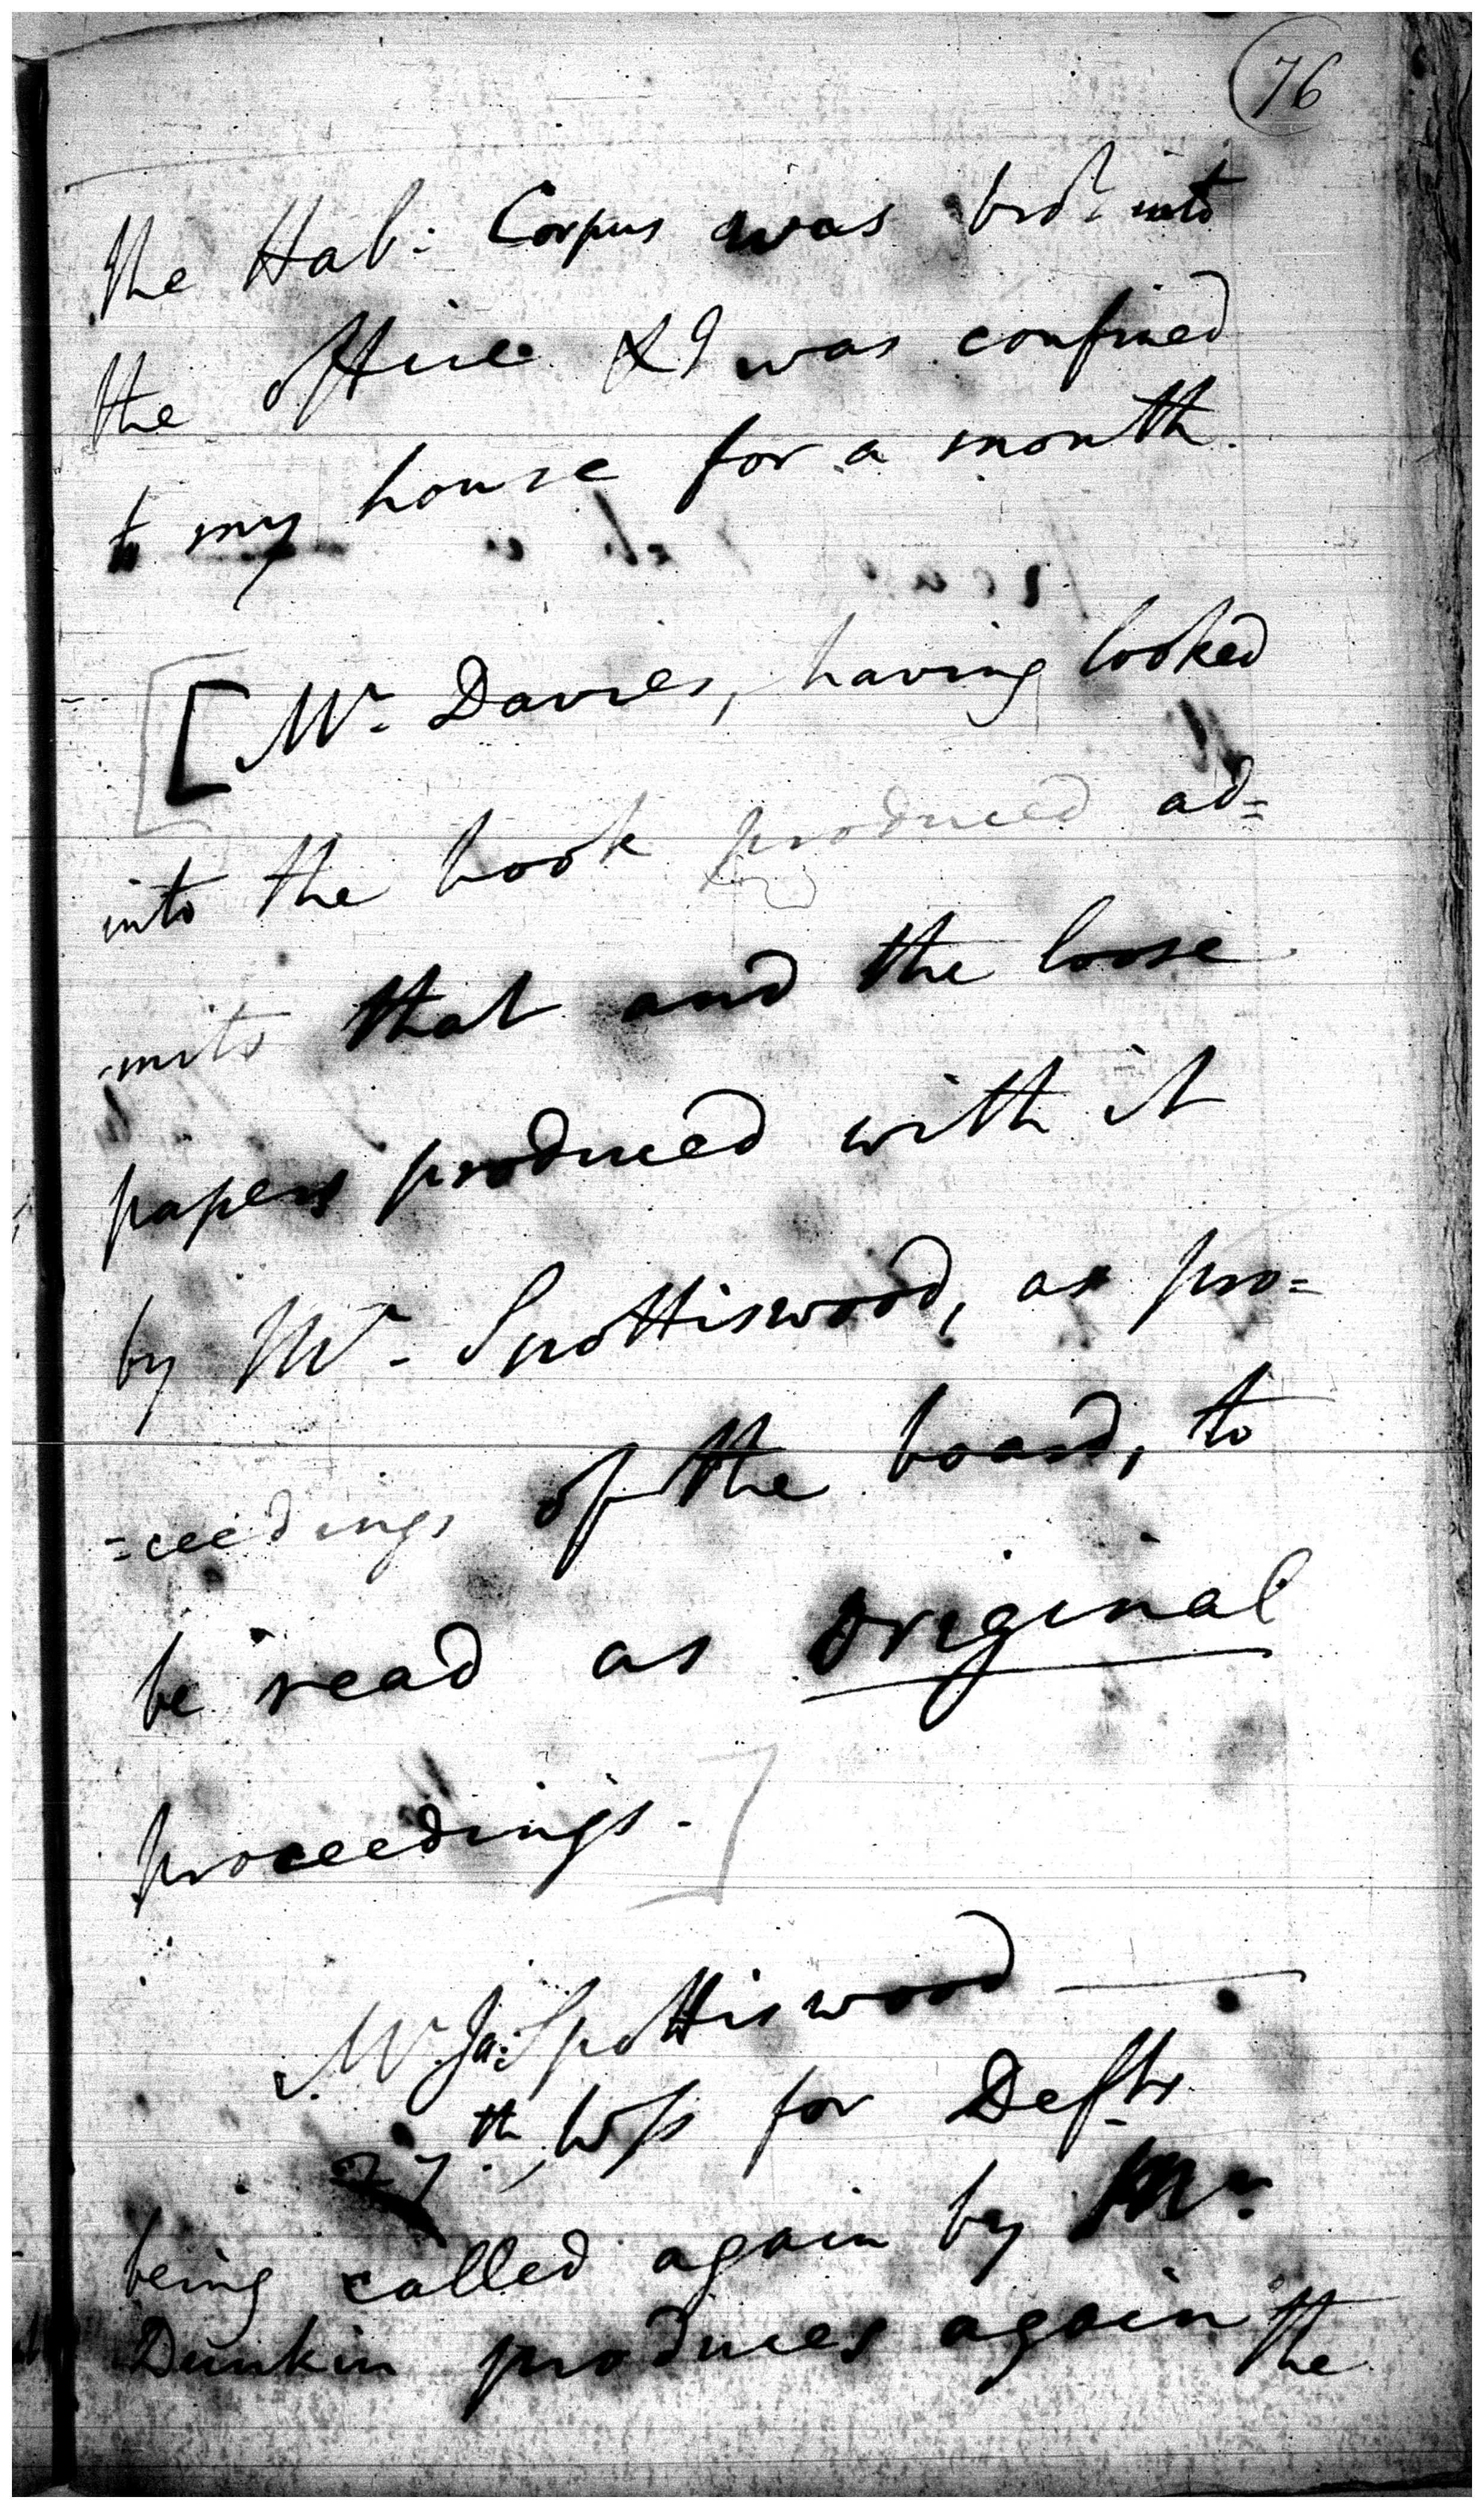 76
the Hab: Corpus was brot. into
the office & I was confined
to my house for a month.
[Mr. Davies, having looked
into the book produced ad=
mits that and the loose
papers produced with it
by Mr. Spottiswood, as pro=
=ceedings of the board, to
be read as original
proceedings.]
Mr. Ja: Spottiswood
27th. Wss for Defts
being called again by Mr.
Dunkin produces again the